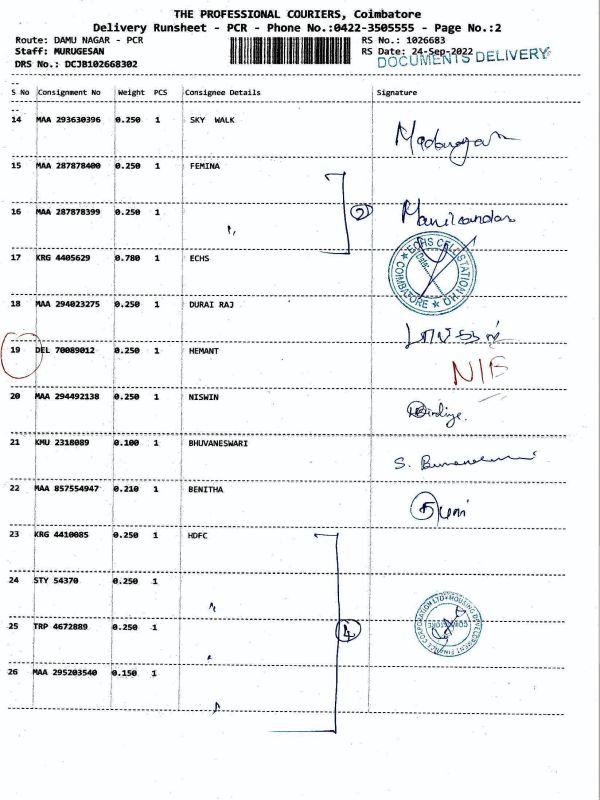 THE PROFESSIONAL COURIERS, Coimbatore
Delivery Runsheet - PCR - Phone No.:0422-3505555 - Page No.:2
Route: DAMU NAGAR - PCR
RS No.: 1026683
Staff: MURUGESAN
RS Date: 24-Sep-2022
DOCUMENTS DELIVERY
DRS No.: DCJB102668302
S No Consignment No Weight PCS Consignee Details Signature
14 MAA 293630396 0.250 1 SKY WALK
15 MAA 287878400 0.250 1 FEMINA
16 MAA 287878399 0.250 1 " 2 Manikandan
17 KRG 4405629 0.780 1 ECHS
ECHS CELL STATION HQ COIMBATORE
18 MAA 294023275 0.250 1 DURAI RAJ
19 DEL 70089012 0.250 1 HEMANT
20 MAA 294492138 0.250 1 NISWIN
21 KMU 2318089 0.100 1 BHUVANESWARI
22 MAA 857554947 0.210 1 BENITHA
23 KRG 4410085 0.250 1 HDFC
24 STY 54370 0.250 1 "
25 TRP 4672889 0.250 1 " 4
HOUSING DEVELOPMENT FINANCE CORPORATION LTD
COIMBATORE
26 MAA 295203540 0.150 1 "